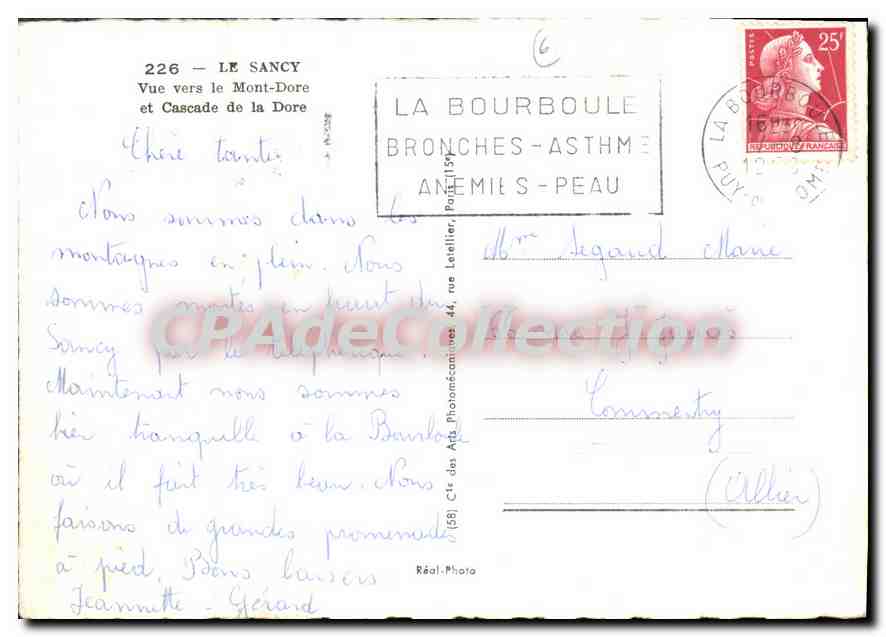 226 — LE SANCY
Vue vers le Mont-Dore
et Cascade de la Dore
Chère tante
Nous sommes dans les
montagnes en plein. Nous
sommes montés en haut du
Sancy par le téléphérique.
Maintenant nous sommes
bien tranquille à la Bourboule
où il fait très beau. Nous
faisons de grandes promenades
à pied. Bons baisers
Jeannette - Gérard
6
LA BOURBOULE
BRONCHES-ASTHME
ANEMIES-PEAU
POSTES
25F
REPUBLIQUE FRANÇAISE
LA BOURBOULE
PUY-DOME
(58) Cie des Arts Photomécaniques, 44, rue Letellier, Paris (15e)
Mme Segaud Marie
Commentry
(Allier)
Réal-Photo
CPAdeCollection